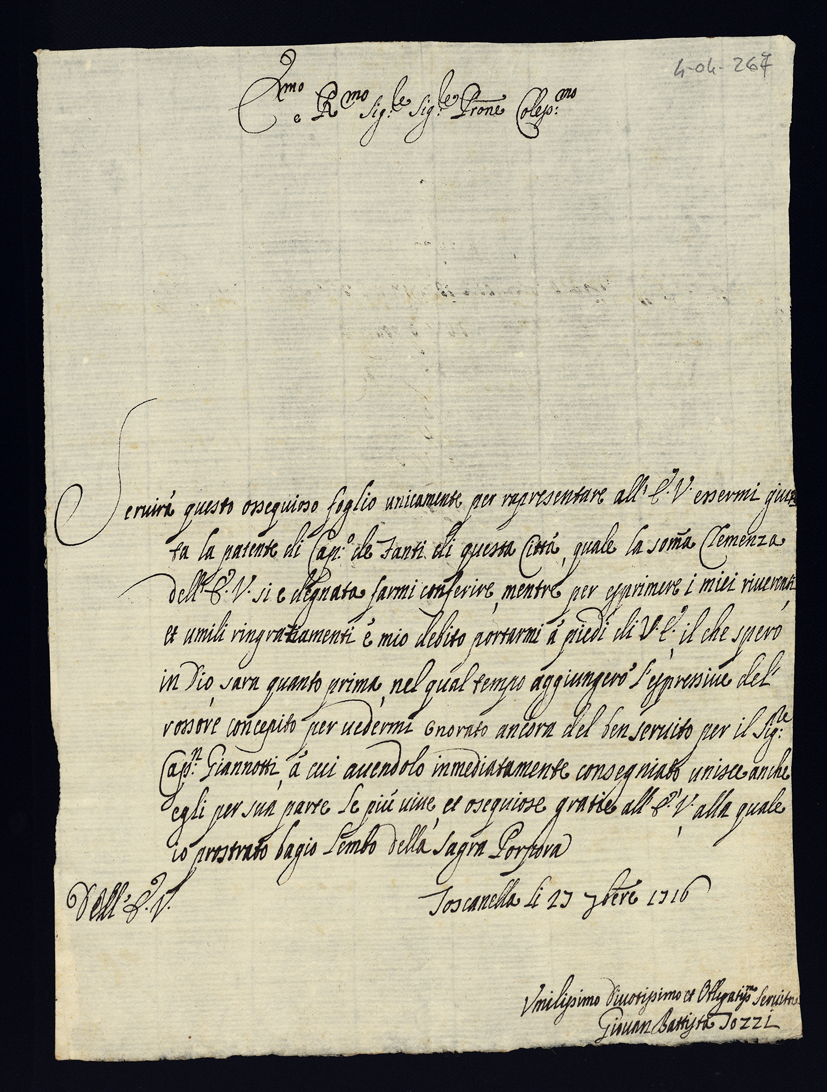 4-04-267
Em̃o
e Rmo Sig:re Sig:re Pr̃one Coless:mo
Servirà questo ossequioso foglio unicamente per rapresentare all' E.V. essermi giun
ta la patente di Cap:o de Fanti di questa Città, quale la som̃a Clemenza
dell' E.V. si e degnata farmi conferire, mentre per esprimere i miei riverenti
et umili ringratiamenti è mio debito portarmi à piedi di V.E., il che spero
in Dio sarà quanto prima, nel qual tempo aggiungerò l'espressive del
rossore concepito per vedermi onorato ancora del ben servito per il Sig:re
Cap:n Giannotti, à cui avendolo inmediatamente consegniato unisce anche
egli per sua parte le più vive, et osequiose gratie all' E.V. alla quale
io prostrato bagio lembo della Sagra Porpora
Dell' E.V.
Toscanella li 27 7bre 1716
Vmilissimo Divotissimo et Obligatiss:mo Servitore
Giovan Battista Tozzi